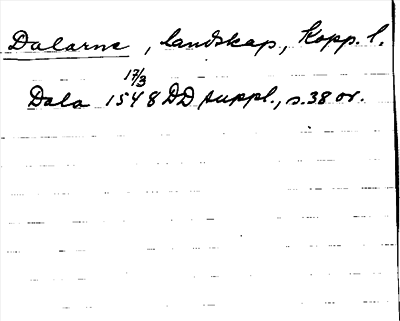 Dalarne, landskap, Kopp. l.
17/3
Dala 1548 DD suppl., s. 38 or.